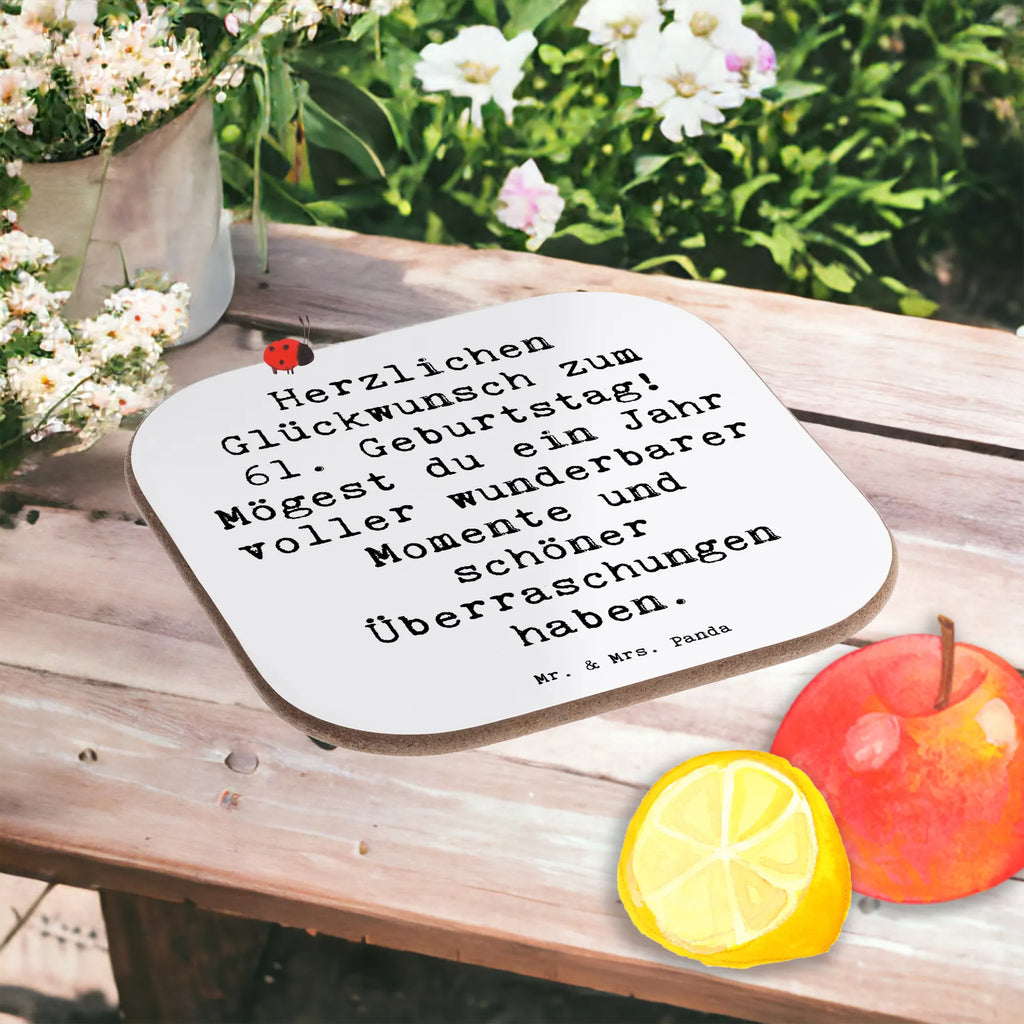 Herzlichen
Glückwunsch zum
61. Geburtstag!
Mögest du ein Jahr
voller wunderbarer
Momente und
schöner
Überraschungen
haben.
Mr. & Mrs. Panda